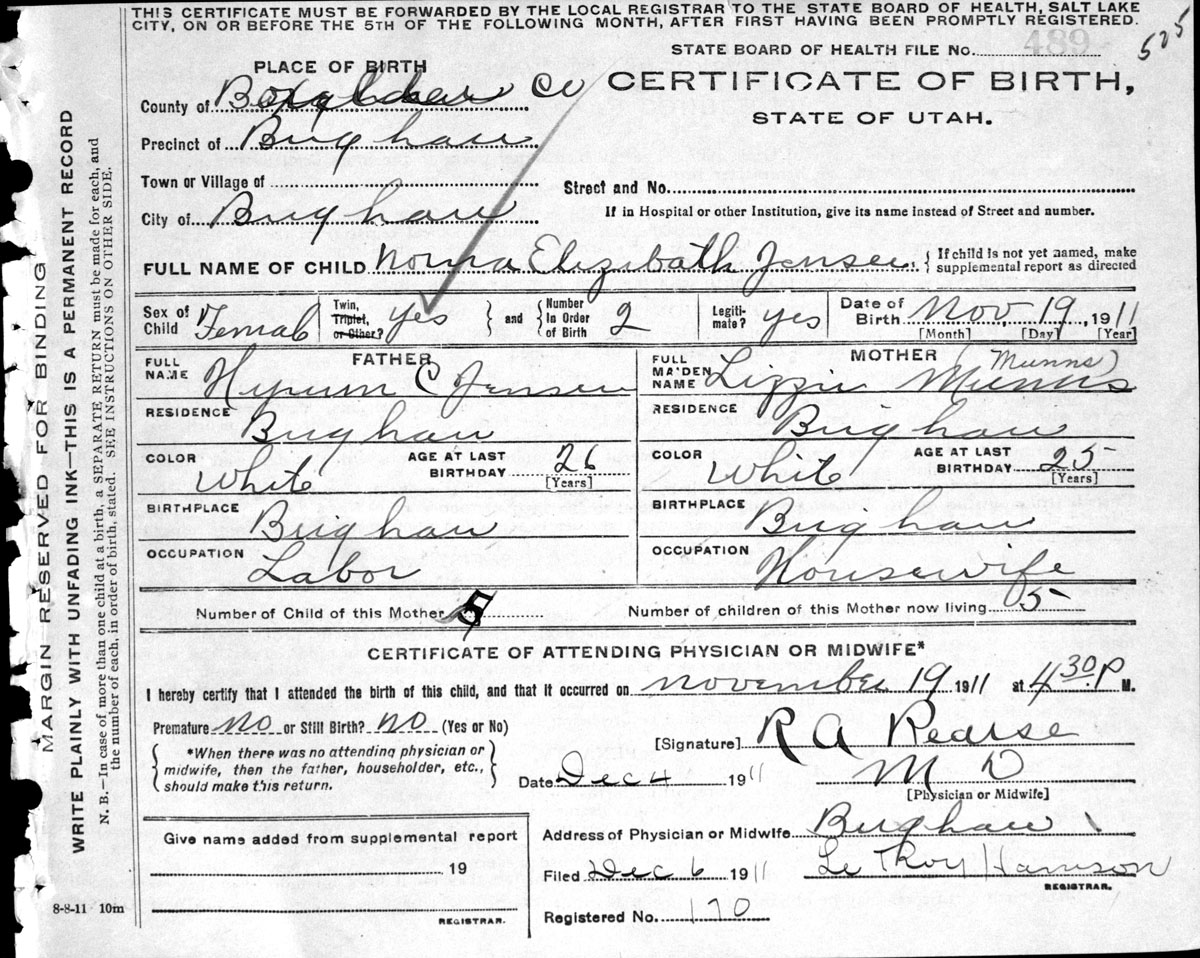 THIS CERTIFICATE MUST BE FORWARDED BY THE LOCAL REGISTRAR TO THE STATE BOARD OF HEALTH, SALT LAKE
CITY, ON OR BEFORE THE 5TH OF THE FOLLOWING MONTH, AFTER FIRST HAVING BEEN PROMPTLY REGISTERED.
525
STATE BOARD OF HEALTH FILE No. 489
PLACE OF BIRTH
CERTIFICATE OF BIRTH,
STATE OF UTAH.
County of Box Co
Precinct of Brigham
Town or Village of
Street and No.
City of Brigham
If in Hospital or other Institution, give its name instead of Street and number.
FULL NAME OF CHILD Norma Elizibath Jensen { If child is not yet named, make
supplemental report as directed
Sex of Child Female Twin, Triplet, or Other? yes } and { Number In Order of Birth 2 Legiti- mate? yes Date of Birth Nov 19, 1911
[Month] [Day] [Year]
FATHER
FULL NAME Hyrum C Jensen
RESIDENCE Brigham
COLOR White AGE AT LAST BIRTHDAY 26
[Years]
BIRTHPLACE Brigham
OCCUPATION Labor
MOTHER (Munns)
FULL MAIDEN NAME Lizzie Munns
RESIDENCE Brigham
COLOR White AGE AT LAST BIRTHDAY 25
[Years]
BIRTHPLACE Brigham
OCCUPATION Housewife
Number of Child of this Mother 5 Number of children of this Mother now living 5
CERTIFICATE OF ATTENDING PHYSICIAN OR MIDWIFE*
I hereby certify that I attended the birth of this child, and that it occurred on November 19 1911 at 4 30 P M.
Premature No or Still Birth? No (Yes or No)
[Signature] R A Pearse
{ *When there was no attending physician or
midwife, then the father, householder, etc.,
should make this return. }
Date Dec 4 1911 M D
[Physician or Midwife]
Give name added from supplemental report
19
REGISTRAR.
Address of Physician or Midwife Brigham
Filed Dec 6 1911 Le Roy Harrison
REGISTRAR.
Registered No. 170
8-8-11 10m
MARGIN RESERVED FOR BINDING
WRITE PLAINLY WITH UNFADING INK—THIS IS A PERMANENT RECORD
N. B.—In case of more than one child at a birth, a SEPARATE RETURN must be made for each, and
the number of each, in order of birth, stated. SEE INSTRUCTIONS ON OTHER SIDE.